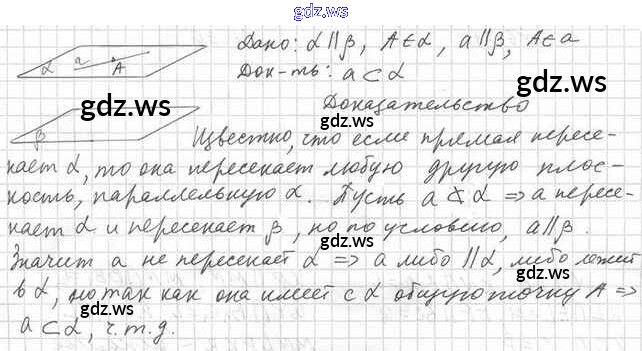 gdz.ws
Дано: α∥β, A∈α, a∥β, A∈a
α a A
Док-ть: a⊂α
gdz.ws
gdz.ws
Доказательство
β
Известно, что если прямая пересе-
кает α, то она пересекает любую другую плос-
кость, параллельную α. Пусть a⊄α ⇒ a пересе-
кает α и пересекает β, но по условию, a∥β.
gdz.ws
Значит a не пересекает α ⇒ a либо ∥α, либо лежит
в α, но так как она имеет с α общую точку A ⇒
gdz.ws
gdz.ws
a⊂α, ч.т.д.
gdz.ws